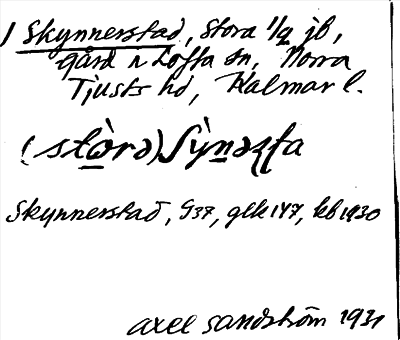 1 Skynnerstad, Stora 1/2 jb,
gård n Loffta sn, Norra
Tjusts hd, Kalmar l.
(stòrə) ʃỳnəʂta
Skynnerstad, G37, glk 147, kb 1930
Axel Sandström 1931